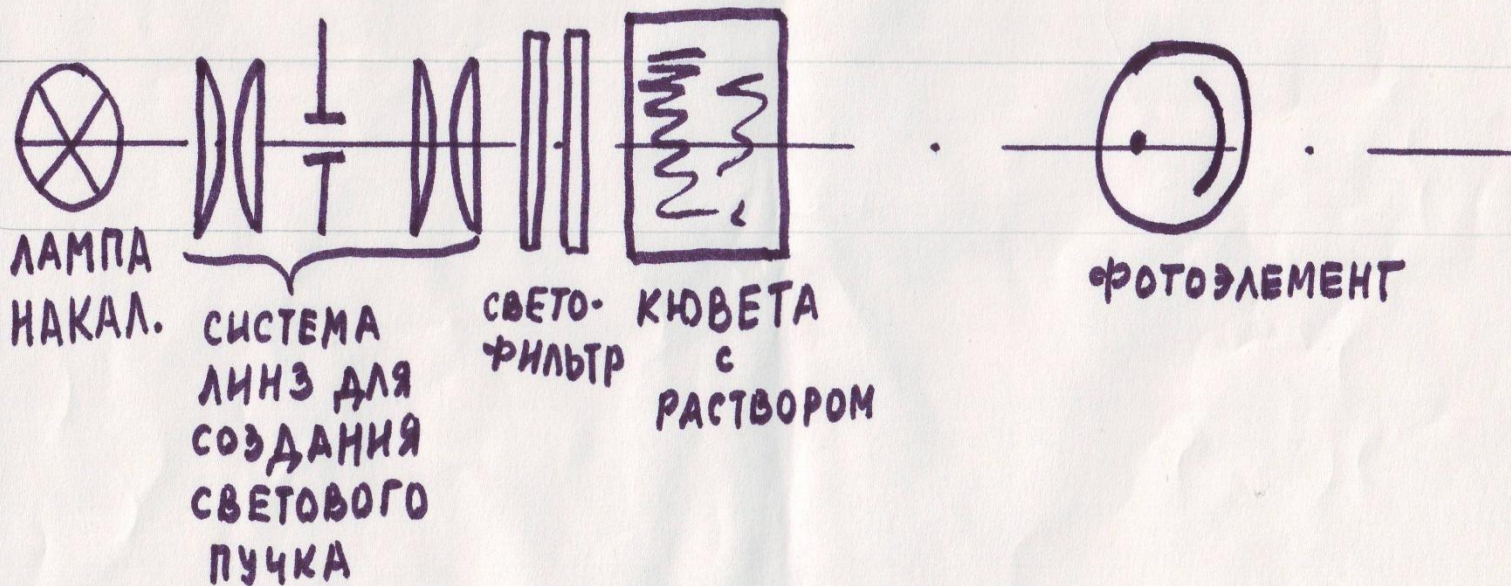 ЛАМПА
НАКАЛ.
СИСТЕМА
ЛИНЗ ДЛЯ
СОЗДАНИЯ
СВЕТОВОГО
ПУЧКА
СВЕТО-
ФИЛЬТР
КЮВЕТА
С
РАСТВОРОМ
ФОТОЭЛЕМЕНТ